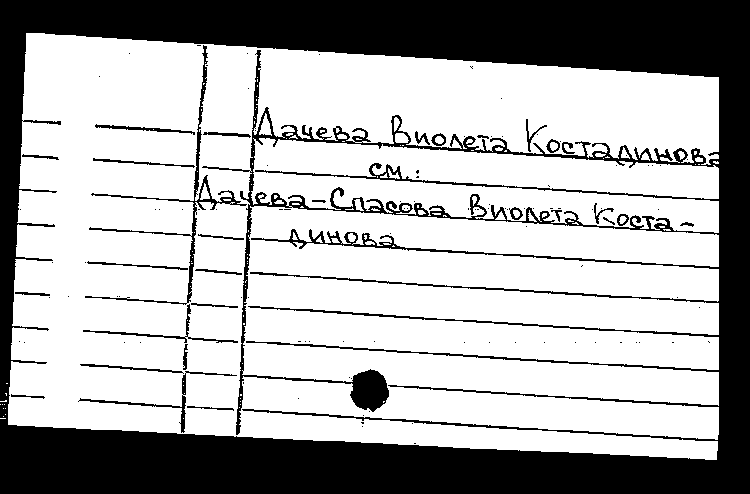 Дачева, Виолета Костадинова
см.:
Дачева-Спасова Виолета Коста-
динова